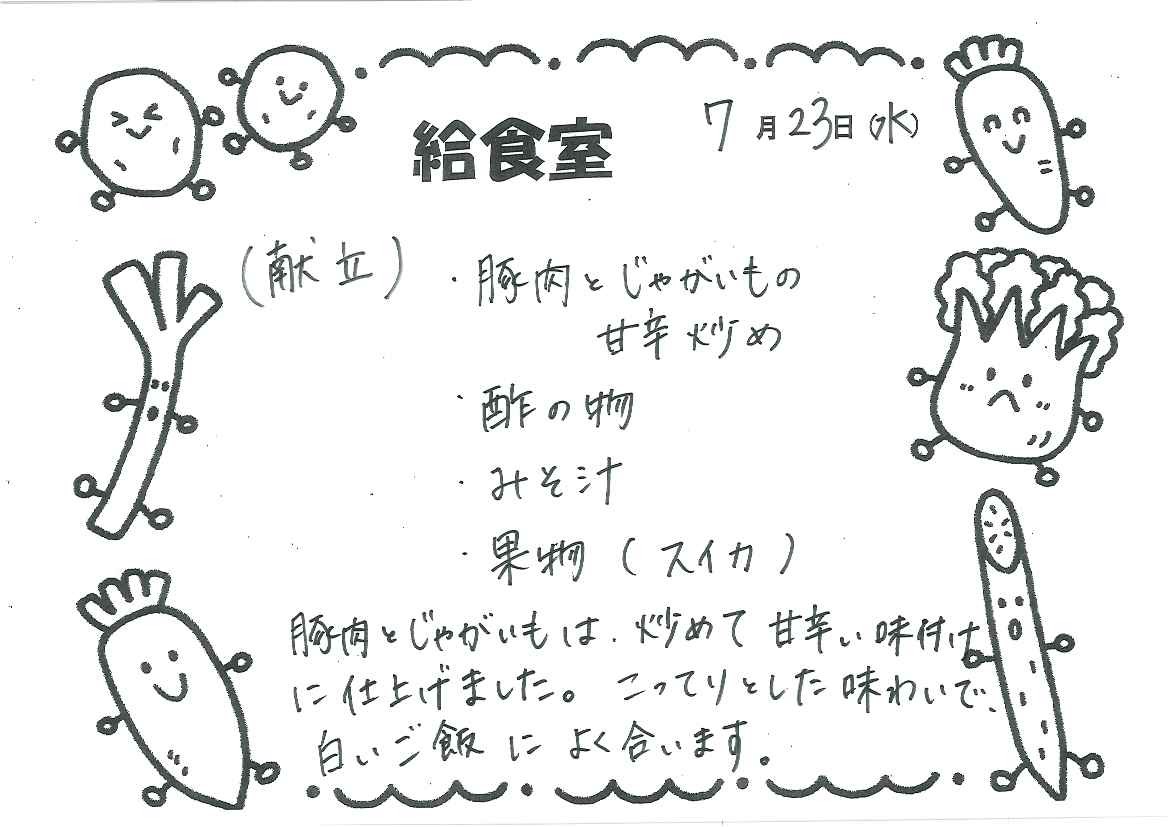 給食室
7月23日(水)
(献立)
・豚肉とじゃがいもの
甘辛炒め
・酢の物
・みそ汁
・果物(スイカ)
豚肉とじゃがいもは、炒めて甘辛い味付け
に仕上げました。こってりとした味わいで、
白いご飯によく合います。